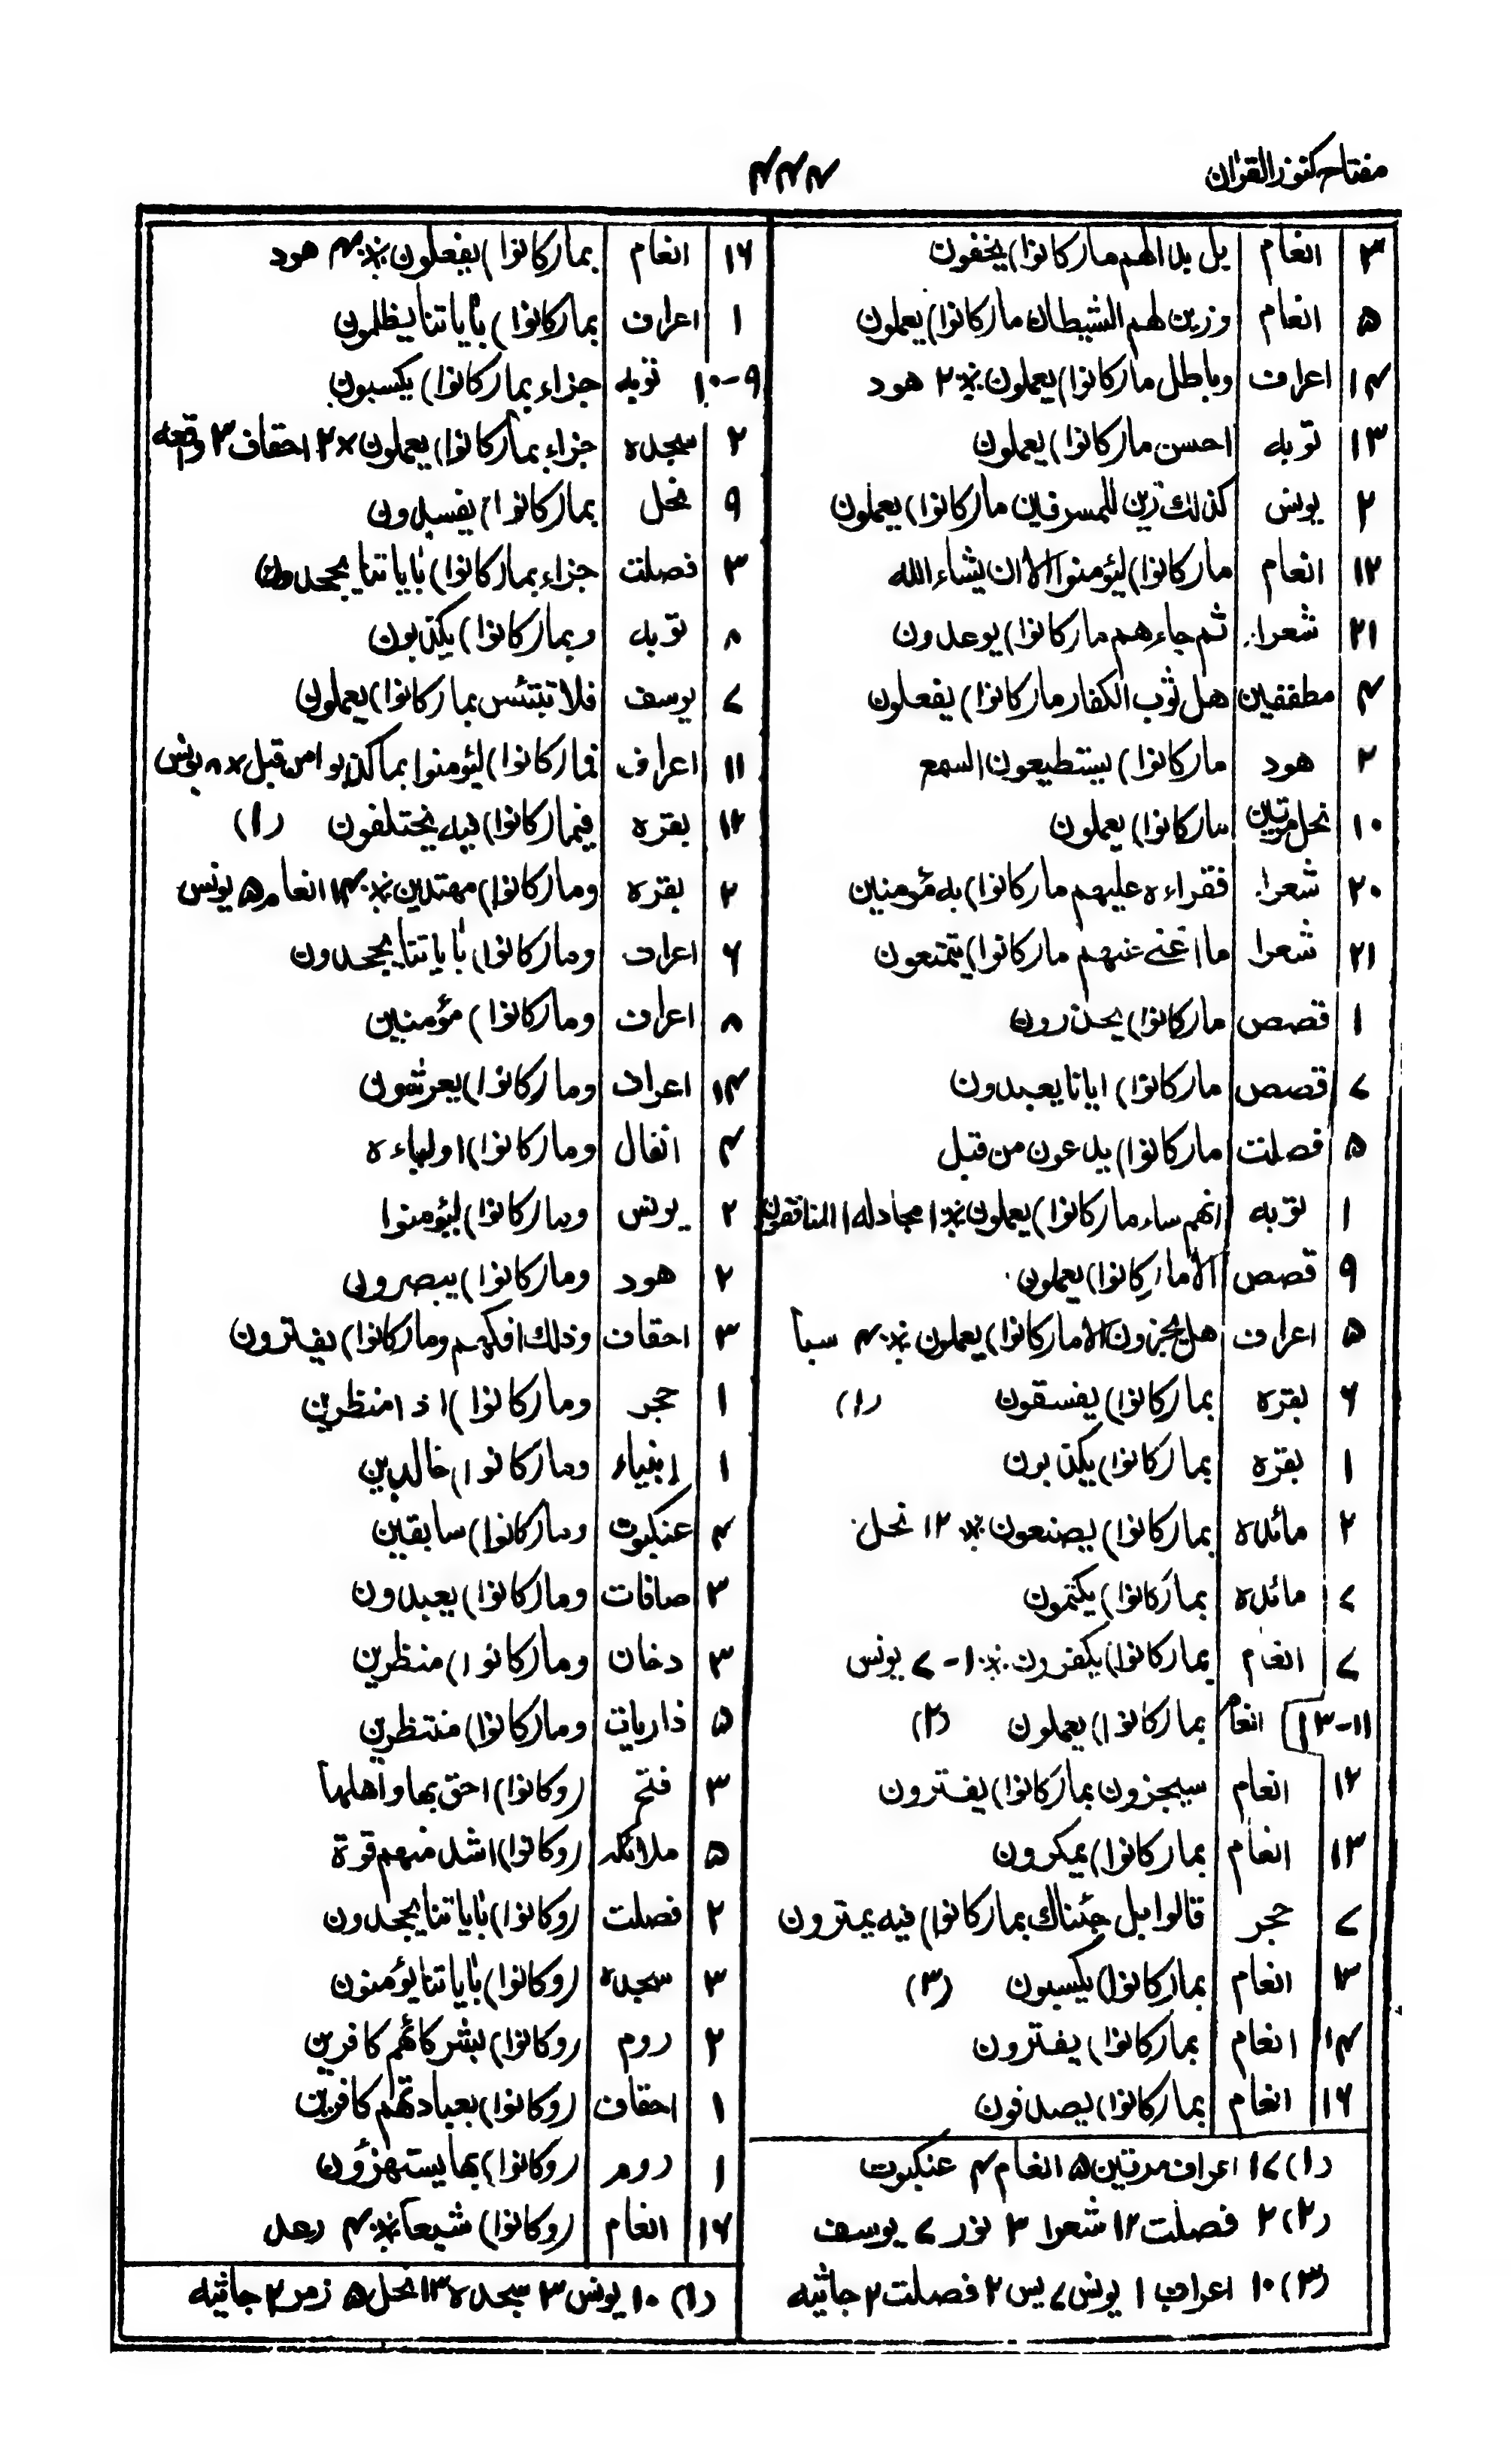 مفتاح کنوز القرآن
۴۴۴
۳ انعام بل بدا لهم ما (کانوا) یخفون
۵ انعام وزین لهم الشیطان ما (کانوا) یعملون
۱۴ اعراف وباطل ما (کانوا) یعملون ※ ۲ هود
۱۳ توبه احسن ما (کانوا) یعملون
۲ یونس کذلک زین للمسرفین ما (کانوا) یعملون
۱۲ انعام ما (کانوا) لیؤمنوا الا ان یشاء الله
۲۱ شعراء ثم جاءهم ما (کانوا) یوعدون
۴ مطففین هل ثوب الکفار ما (کانوا) یفعلون
۲ هود ما (کانوا) یستطیعون السمع
۱۰ نحل مرتین ما (کانوا) یعملون
۲۰ شعراء فقراءه علیهم ما (کانوا) به مؤمنین
۲۱ شعرا ما اغنی عنهم ما (کانوا) یمتعون
۱ قصص ما (کانوا) یحذرون
۷ قصص ما (کانوا) ایانا یعبدون
۵ فصلت ما (کانوا) یدعون من قبل
۱ توبه انهم ساء ما (کانوا) یعملون ※ ۱ مجادله ۱ المنافقون
۹ قصص الا ما (کانوا) یعملون
۵ اعراف هل یجزون الا ما (کانوا) یعملون ※ ۴ سبأ
۶ بقره بما (کانوا) یفسقون (۱)
۱ بقره بما (کانوا) یکذبون
۲ مائده بما (کانوا) یصنعون ※ ۱۲ نحل
۷ مائده بما (کانوا) یکتمون
۷ انعام بما (کانوا) یکفرون ※ ۱-۷ یونس
۱۱-۱۳ انعام بما (کانوا) یعملون (۲)
۱۲ انعام سیجزون بما (کانوا) یفترون
۱۳ انعام بما (کانوا) یمکرون
۷ حجر قالوا بل جئناک بما (کانوا) فیه یمترون
۱۳ انعام بما (کانوا) یکسبون (۳)
۱۴ انعام بما (کانوا) یفترون
۱۶ انعام بما (کانوا) یصدفون
(۱) ۱۷ اعراف مرتین ۵ انعام ۴ عنکبوت
(۲) ۲ فصلت ۱۲ شعرا ۳ نور ۷ یوسف
(۳) ۱۰ اعراف ۱ یونس ۷ یس ۲ فصلت ۲ جاثیه
۱۶ انعام بما (کانوا) یفعلون ※ ۴ هود
۱ اعراف بما (کانوا) بأیاتنا یظلمون
۹-۱۰ توبه جزاء بما (کانوا) یکسبون
۲ سجده جزاء بما (کانوا) یعملون × ۲ احقاف ۳ واقعه
۹ نحل بما (کانوا) یفسدون
۳ فصلت جزاء بما (کانوا) بأیاتنا یجحدون
۸ توبه وبما (کانوا) یکذبون
۷ یوسف فلا تبتئس بما (کانوا) یعملون
۱۱ اعراف فما (کانوا) لیؤمنوا بما کذبوا من قبل × ۸ یونس
۱۲ بقره فیما (کانوا) فیه یختلفون (۱)
۲ بقره وما (کانوا) مهتدین ※ ۱۴ انعام ۵ یونس
۶ اعراف وما (کانوا) بأیاتنا یجحدون
۸ اعراف وما (کانوا) مؤمنین
۱۴ اعراف وما (کانوا) یعرشون
۴ انفال وما (کانوا) اولیاءه
۲ یونس وما (کانوا) لیؤمنوا
۲ هود وما (کانوا) یبصرون
۳ احقاف وذلک افکهم وما (کانوا) یفترون
۱ حجر وما (کانوا) اذا منظرین
۱ انبیاء وما (کانوا) خالدین
۴ عنکبوت وما (کانوا) سابقین
۳ صافات وما (کانوا) یعبدون
۳ دخان وما (کانوا) منظرین
۵ ذاریات وما (کانوا) منتظرین
۳ فتح (وکانوا) احق بها واهلها
۵ ملائکه (وکانوا) اشد منهم قوة
۲ فصلت (وکانوا) بأیاتنا یجحدون
۳ سجده (وکانوا) بأیاتنا یؤمنون
۲ روم (وکانوا) بشرکائهم کافرین
۱ احقاف (وکانوا) بعبادتهم کافرین
۱ روم (وکانوا) بها یستهزؤن
۱۶ انعام (وکانوا) شیعا ※ ۴ رعد
(۱) ۱۰ یونس ۳ سجده ۱۳ نحل ۵ زمر ۲ جاثیه